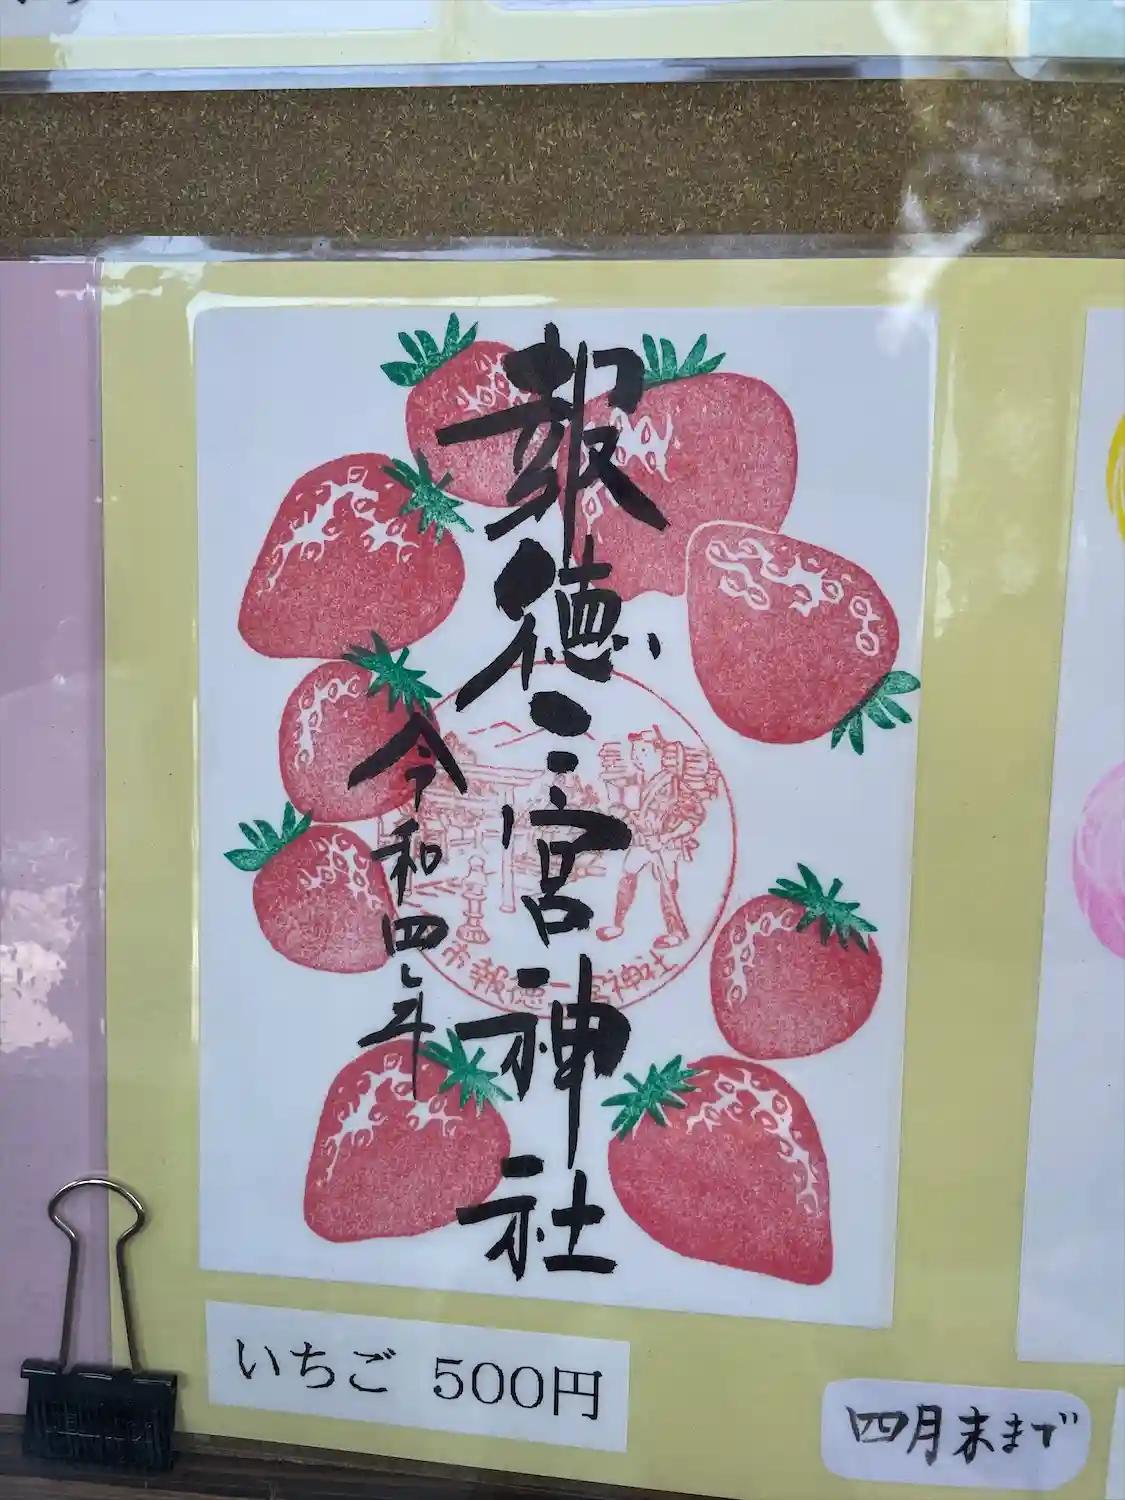 報徳二宮神社
令和四年
報徳二宮神社
いちご 500円
四月末まで